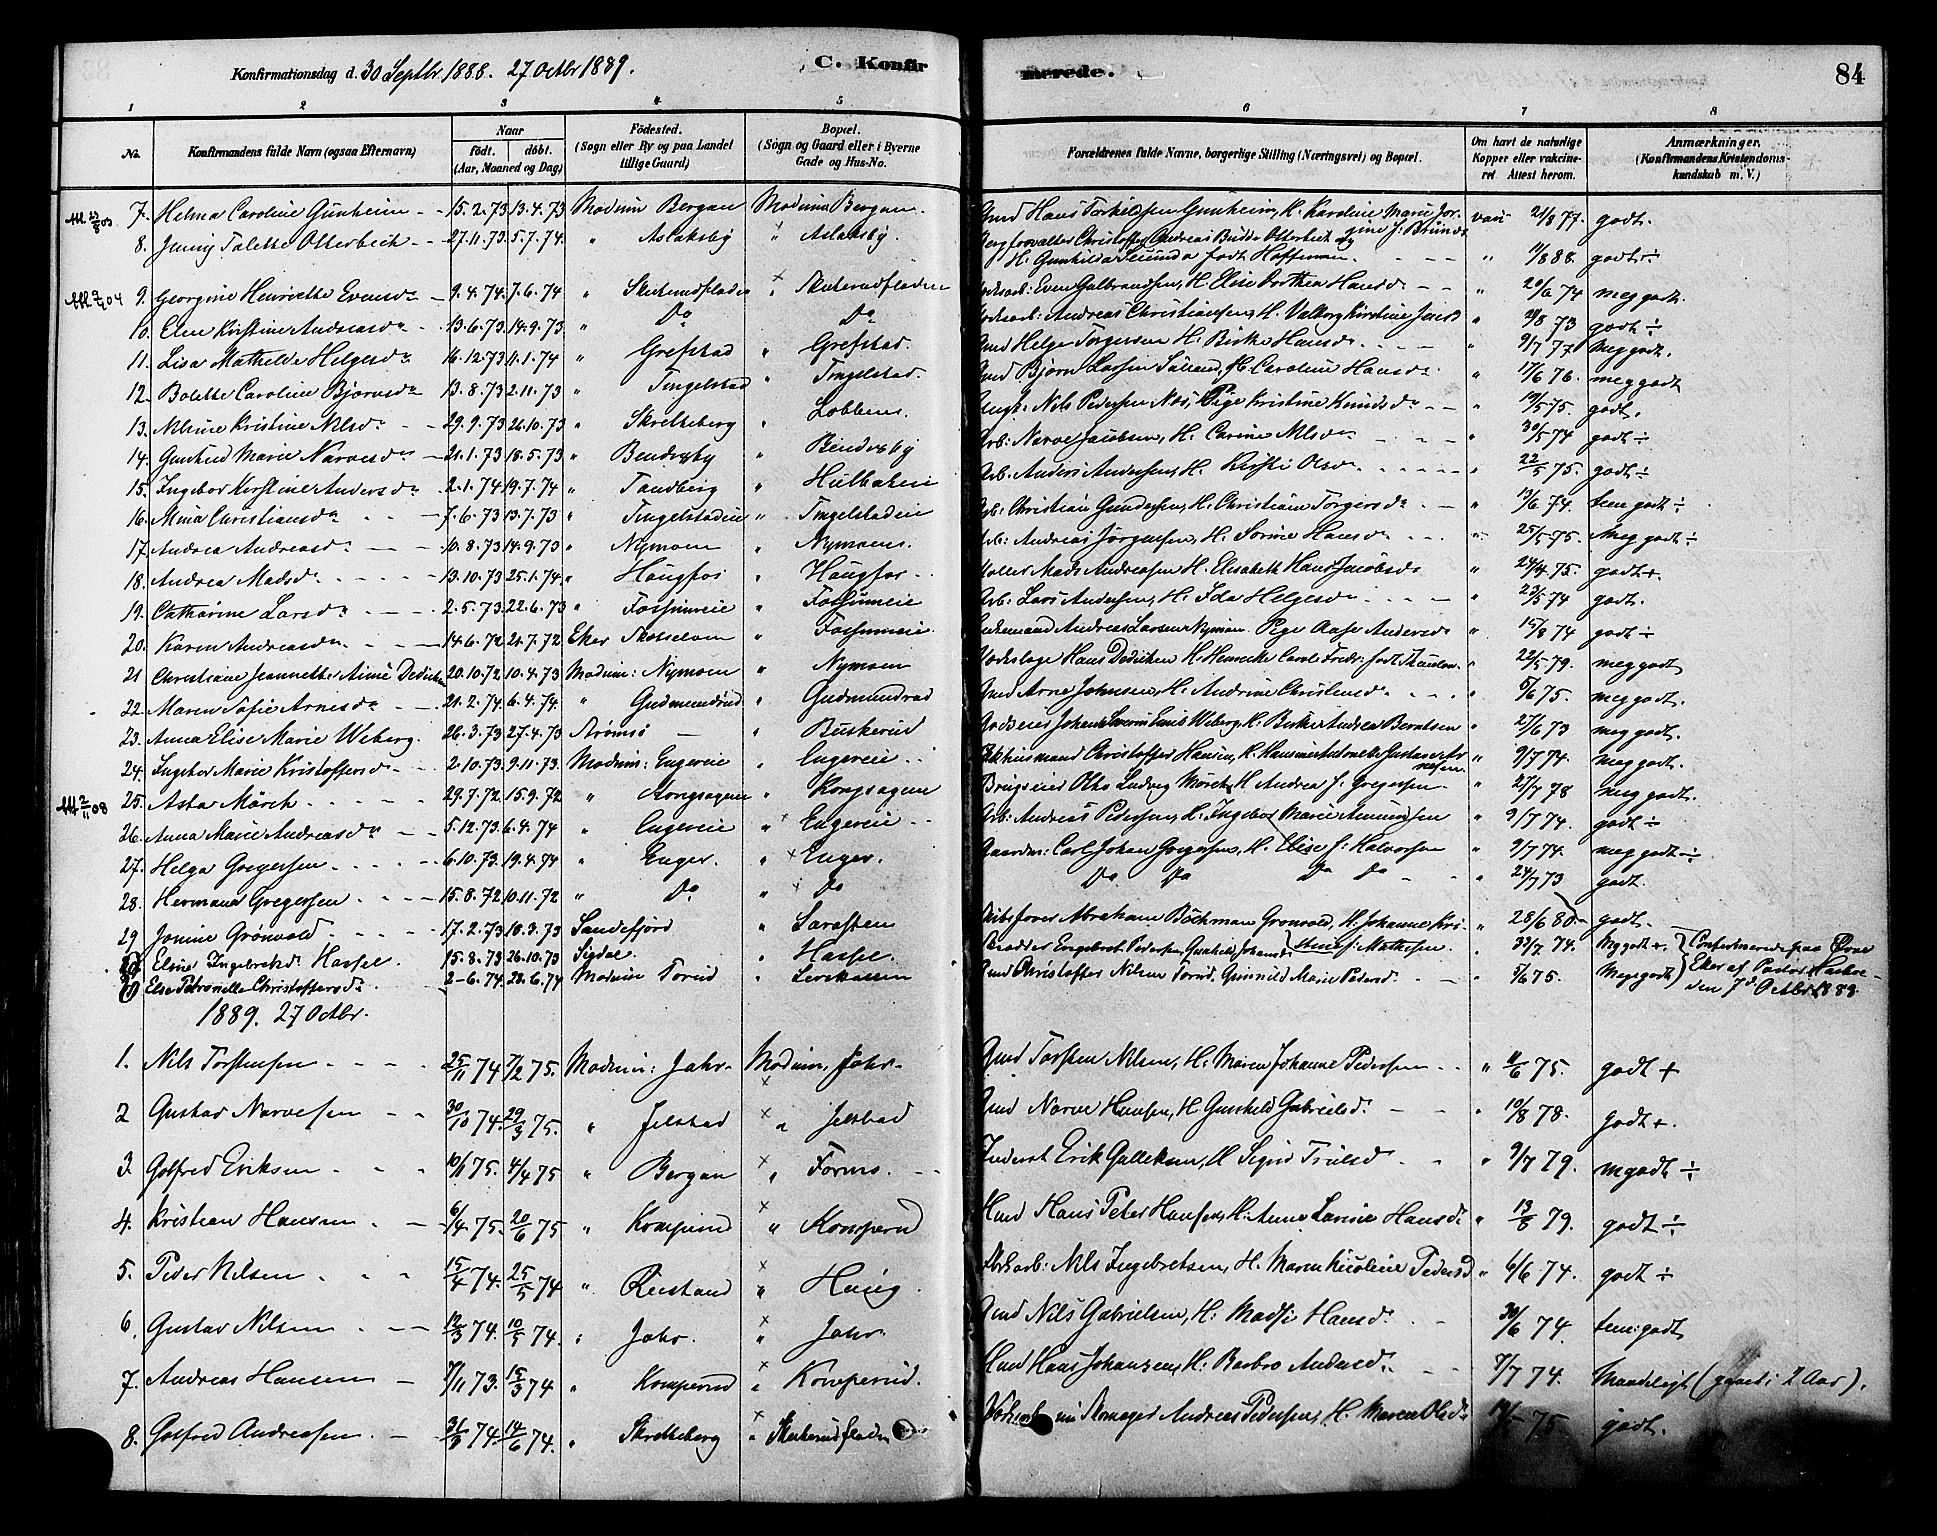 Konfirmationsdag d. 30 Septbr. 1888. 27 Octbr 1889. C. Konfirmerede. 84
1 2 3 4 5 6 7 8
No. Konfirmandens fulde Navn (ogsaa Efternavn) Naar født. døbt. (Aar, Maaned og Dag) Fødested. (Sogn eller By og paa Landet tillige Gaard) Bopæl. (Sogn og Gaard eller i Byerne Gade og Hus-No. Forældrenes fulde Navne, borgerlige Stilling (Næringsvei) og Bopæl. Om havt de naturlige Kopper eller vakcineret. Attest herom. Anmærkninger. (Konfirmandens Kristendomskundskab m. V.)
7. Helma Caroline Gunheim 15.2.73 13.4.73 Modum Bergan Modum Bergan. Hans Torkildsen Gunheim, H. Karoline Marie Jorgine f. Bruun vac: 21/8 77. godt.
8. Jenny Talette Otterbech 27.11.73 5.7.74. " Aslaksby " Aslaksby. Bergforvalter Christoffer Andreas Budde Otterbech og H. Gunhilda f. Hoffmann " 11/8 88. godt ÷
9. Georgine Henriette Evensdr 9.4.74. 7.6.74 " Skuterudfladen " Skuterudfladen Even Gulbrandsen, H. Elise Dorthea Hansdr " 20/6 74 meg godt.
10. Elen Kristine Andreasdr 13.6.73 14.9.73 " Do Do Andreas Christiansen, H. Valborg Kirstine " 21/8 73 godt ÷
11. Lisa Mathilde Helgesdr 16.12.73 11.1.74 " Grefstad " Grefstad. Helge Torgersen H. Birthe Hansdr " 9/7 77 Meg godt.
12. Bolette Caroline Bjørnsdr 13.8.73 2.11.73 " Tingelstad " Tingelstad. Bjørn Larsen H. Caroline Hansdr " 17/6 76. meg godt
13. Nilsine Kristine Nilsdr 29.9.73 26.10.73 " Skretteberg " Lobben. Nils Pedersen Næs, Pige Kristine Knudsdr " 19/5 75. godt.
14. Gunhild Marie Narvesdr 21.1.73 18.5.73 " Bendigsby " Bendigsby Arb: Narve Jacobsen, H. Carine Nilsdr " 30/5 74 godt ÷
15. Ingebor Kirstine Andersdr 2.1.74 19.7.74 " Tandberg " Hulbaken Arb: Anders Andersen, H. Kirsti Olsdr " 22/5 75. godt ÷
16. Mina Christiansdr 7.6.73 13.7.73 " Tingelstadeie " Tingelstadeie Arb: Christian Gundersen, H. Christiane Torgersdr " 13/6 74. tem godt ÷
17. Andrea Andreasdr 10.8.73 14.9.73 " Nymoen " Nymoen. Arb: Andreas Jørgensen, H. Sørine Hansdr " 25/5 75. Meg godt ÷
18. Andrea Madsdr 13.10.73 25.1.74 " Haugfos " Haugfos Møller Mads Andreasen H. Elisabeth Hans Jacobsdr " 24/4 75. godt +.
19. Catharine Larsdr 2.5.73 22.6.73 " Fossumeie " Fossumeie Arb: Lars Andersen, H. Ida Helgesdr " 23/5 74 godt.
20. Karen Andreasdr 14.6.72 21.7.72 Eker " Fossumeie. Enkemand Andreas Larsen Nymoen Pige Aase Andersdr " 15/8 74 godt ÷
21 Christiane Jeannette Aimé Dedichen 20.10.72 10.4.73 Modum: Nymoen " Nymoen Værkslæge Hans Dedichen H. Henrikke Carol. Fredr. født Thaulow " 22/5 79. meg godt
22. Maren Sofie Arnesdr 21.2.74. 6.4.74. " Gudmundrud " Gudmundrud Arne Johnsen, H. Andrine Christensdr " 5/6 75. meg godt.
23. Anna Elise Marie Weberg. 26.3.73 27.4.73 Strømsø " Buskerud Weberg, H. Birthe Andrea Berntsen " 27/6 73 meg godt.
24. Ingebor Marie Kristoffersdr 2.10.73. 9.11.73. Modum: Engereie " Engereie Christoffer Hansen, H. " 9/7 74. meg godt.
25. Asta Mörch 29.7.72 15.9.72 " Kongsagene " Kongsagene Brugseier Otto Ludvig Mörch, H. Andrea f. Gregersen " 27/7 78 meg godt.
26. Anna Marie Andreasdr 5.12.73. 6.4.74 " Engereie " Engereie Arb: Andreas Pedersen, H. Ingebor Marie Amundsen " 9/7 74. godt ÷
27. Helga Gregersen 6.10.73. 19.4.74 " Enger. " Enger. Gaardbr: Carl Johan Gregersen, H. Elise f. Halvorsen " 9/7 74. meg godt ÷
28. Hermana Gregersen 15.8.72 10.11.72 " Do " Do Do Do Do Do " 24/7 73 godt.
29 Jonine Grönvold 17.2.73 10.3.73 Sandefjord " Abraham Böchman Gronvold, H. Johanne " 28/6 80 godt.
Eline Ingebretsdr Hassel. 15.8.73 26.10.73 Sigdal " Hassel. Engebret Pedersen, Gunhild f. Mathesen. " 7 74. Meg godt +. Confirmerede paa Øvre
Else Petronelle Christoffersdr 2-6.74 28.6.74 Modum Torud " Christoffer Nilsen Torud. Gunnild Marie Pedersdr " 5/6 75. Meg godt Eker af Pastor
den 7de Octbr. 1888.
1889. 27 Octbr.
1. Nils Torstensen 25/11 74. 7/2 75. Modum: Jahr. Modum. Jahr. Torsten Nilsen, H. Maren Johanne Pedersen " 11/6 75. godt +
2 Gustav Narvesen 30/10 74. 29/3 75. " Jelstad " Jelstad Narve Hansen, H. Gunhild Gabrielsdr " 10/8 78. godt +.
3. Gotfred Eriksen 10/1 75. 4/4 75 " Bergan " Formo. Inderst Erik Gulleksen, H Sigrid Trulsdr " 9/7 79. m godt ÷
4. Kristian Hansen 6/4 75. 20/6 75 " Komperud " Komperud Hans Peter Hansen, H. Anne Larine Hansdr " 13/8 79. godt ÷
5. Peder Nilsen 15/4 74. 25/5 74 " Rustand " Haug. Nils Ingebretsen, H. Maren Nicoline Pedersd " 6/6 74. godt ÷
6. Gustav Nilsen 12/3 74. 10/5 74. " Jahr. " Jahr Nils Gabrielsen, H. Madsi Hansdr 30/6 74. tem: godt
7. Andreas Hansen 7/11 73. 15/3 74 " Komperud " Komperud. Hans Johansen, H. Barbro Andersdr 7/7 74. Maadeligt (gaaet i 2 Aar).
8. Gotfred Andreasen. 31/3 74. 14/6 74. " Skretteberg " Skuterudfladen Andreas Pedersen, H. Maren Olsdr 75. godt.